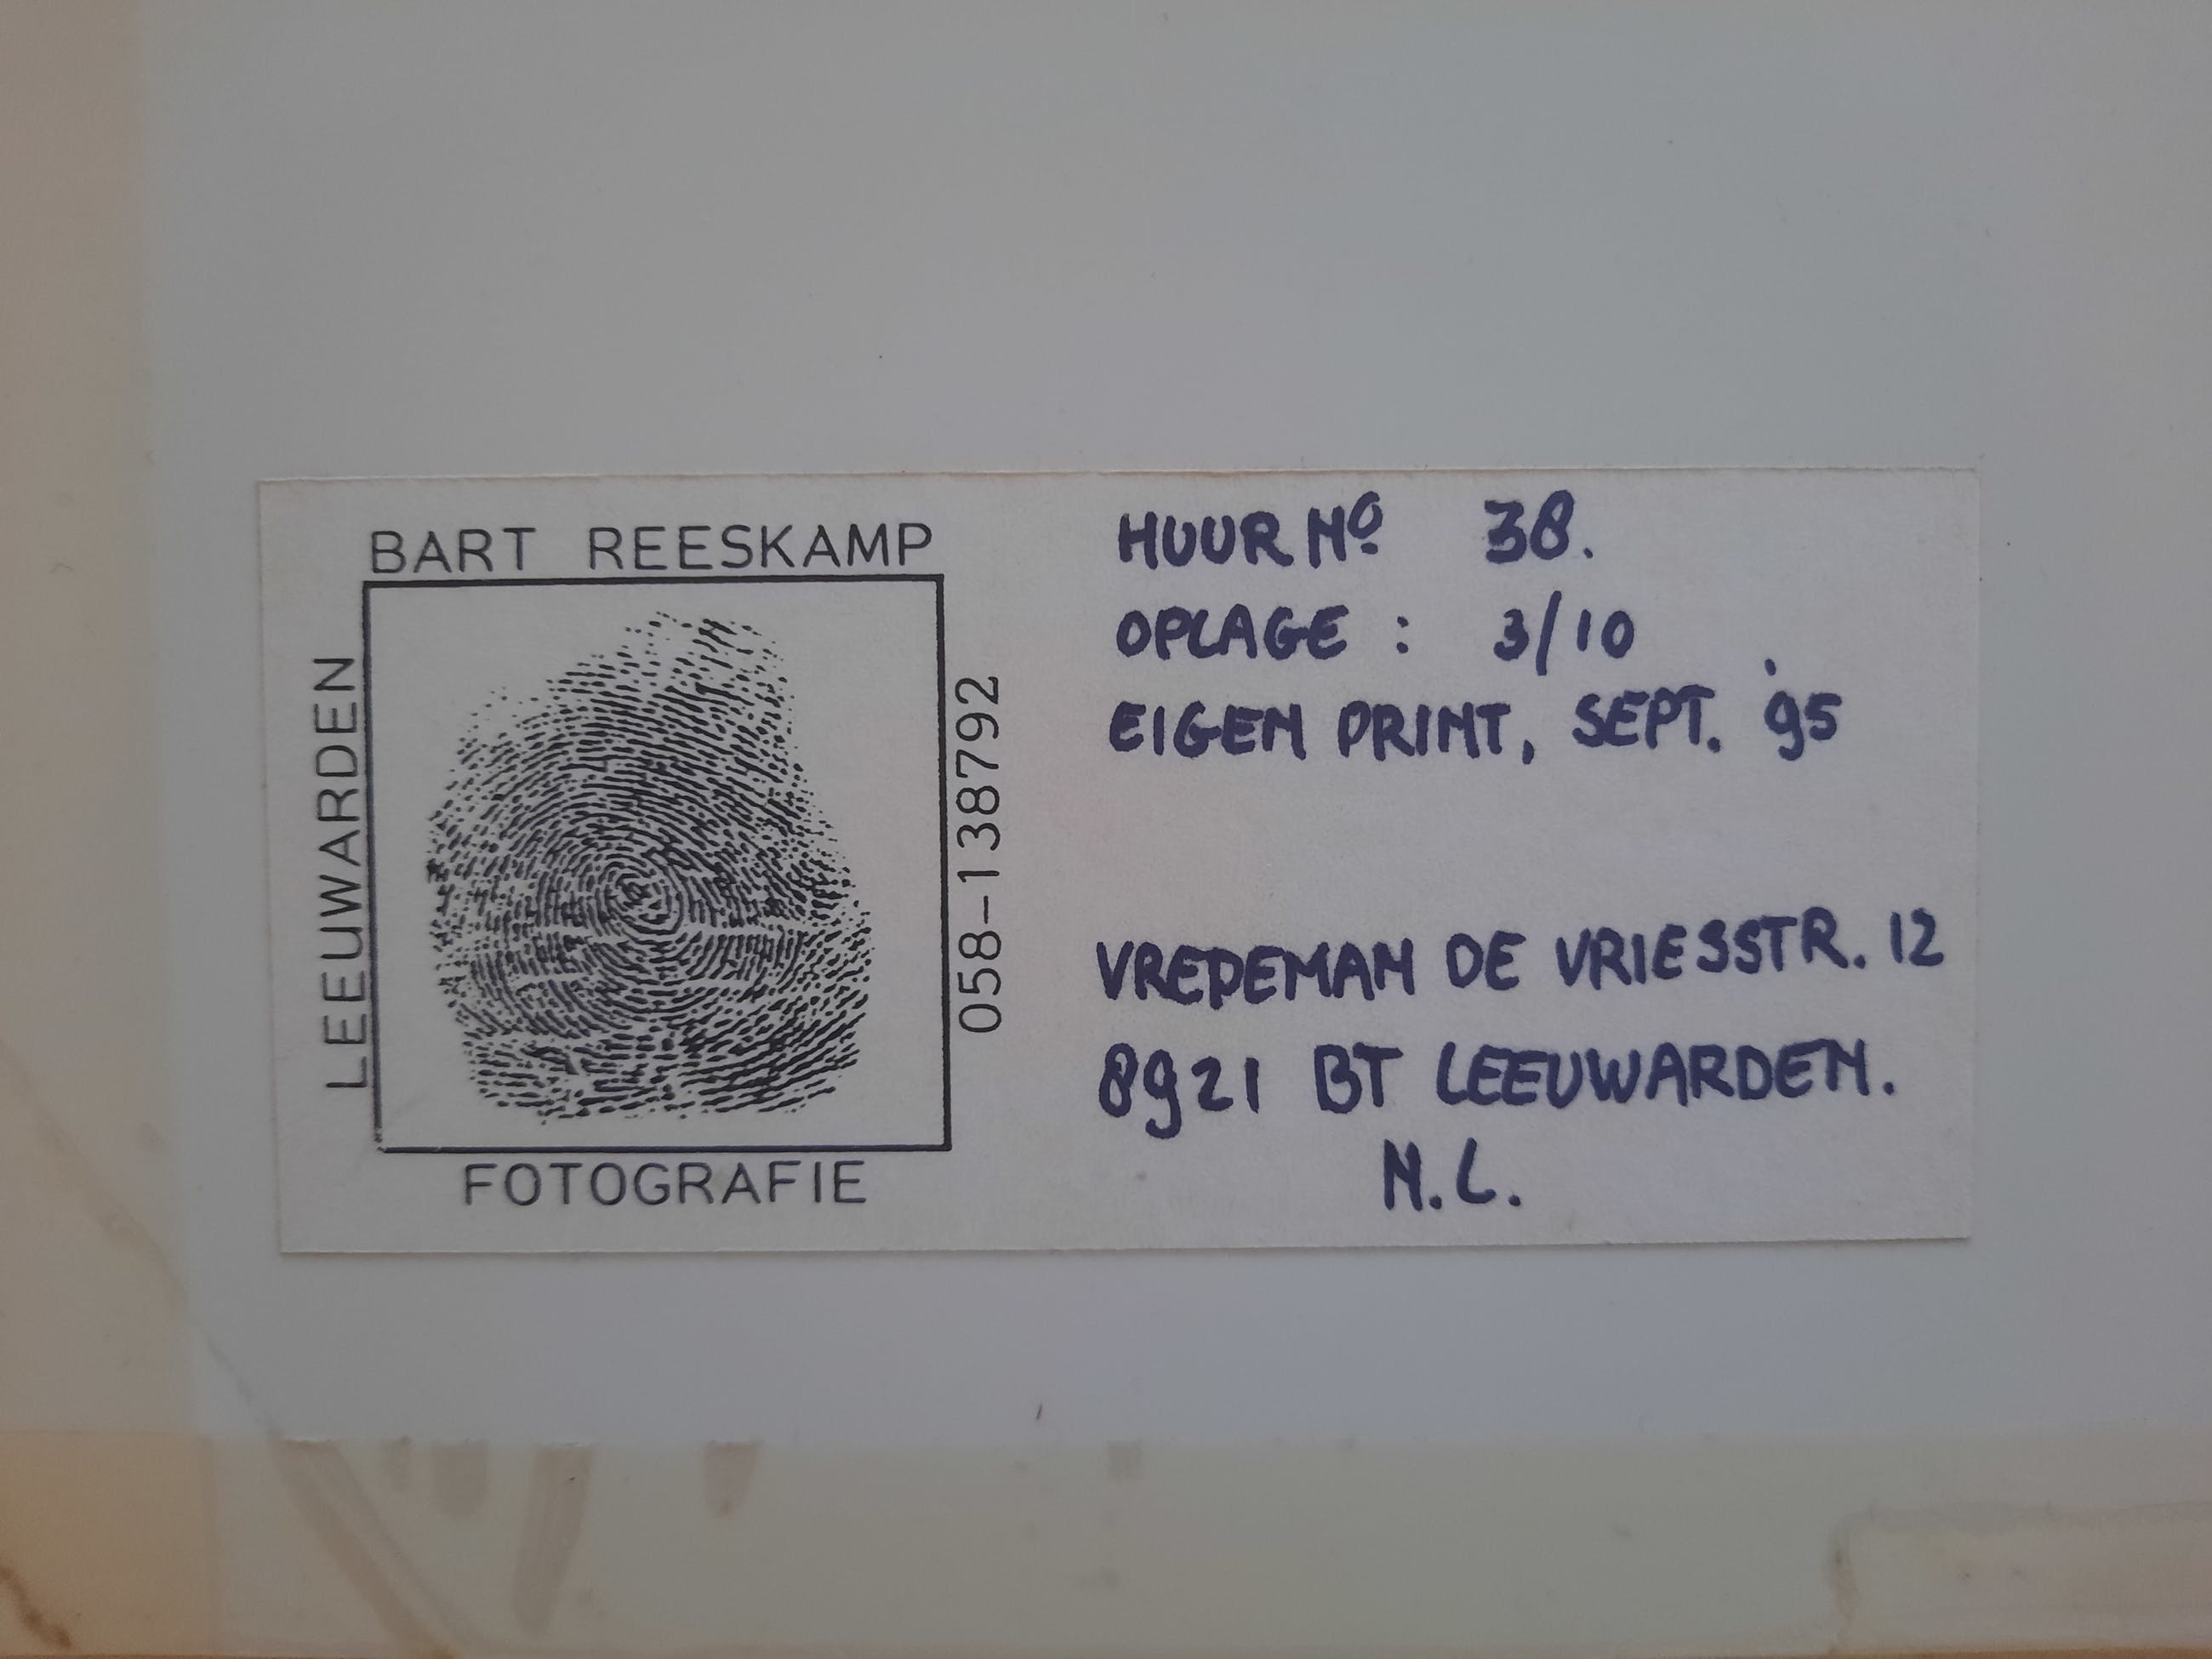 BART REESKAMP
LEEUWARDEN
058-138792
FOTOGRAFIE
HUUR Nº 38.
OPLAGE : 3/10
EIGEN PRINT, SEPT. '95
VREDEMAN DE VRIESSTR. 12
8921 BT LEEUWARDEN.
N.L.